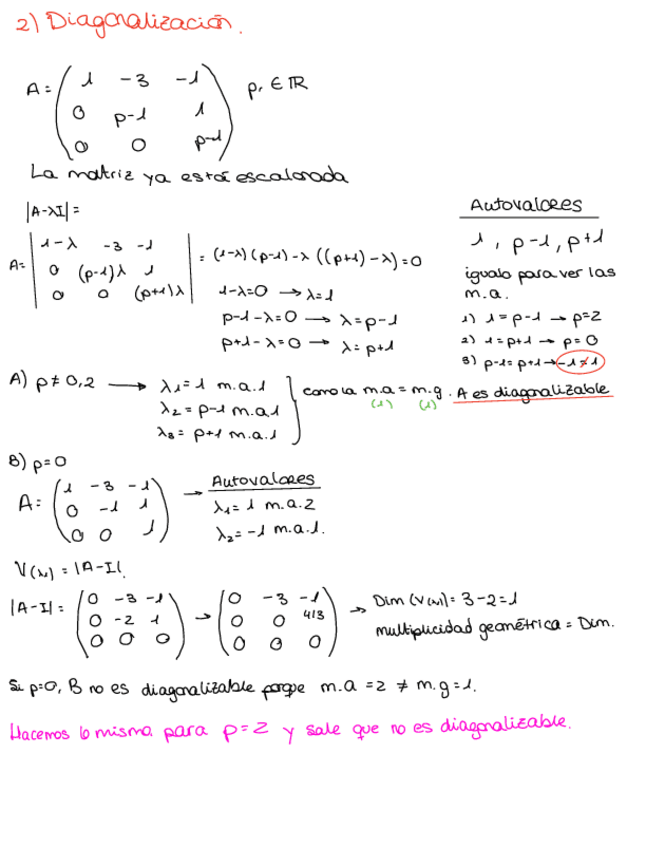 2) Diagonalización.
A = ( 1 -3 -1 ) p, ∈ ℝ
0 p-1 1
0 0 p-1
La matriz ya está escalonada
|A-λI| =
A = | 1-λ -3 -1 |
0 (p-1)λ 1
0 0 (p+1)λ
= (1-λ)(p-1)-λ ((p+1)-λ)=0
1-λ=0 → λ=1
p-1-λ=0 → λ=p-1
p+1-λ=0 → λ=p+1
Autovalores
1, p-1, p+1
igualo para ver las
m.a.
1) 1=p-1 → p=2
2) 1=p+1 → p=0
3) p-1=p+1 → -1≠1
A) p≠0,2 → λ1=1 m.a.1
λ2=p-1 m.a1
λ3=p+1 m.a.1
como la m.a=m.g. A es diagonalizable
(1) (1)
B) p=0
A = ( 1 -3 -1 )
0 -1 1
0 0 1
→ Autovalores
λ1=1 m.a.2
λ2=-1 m.a.1.
V(λ1)=|A-I|.
|A-I| = ( 0 -3 -1 ) → ( 0 -3 -1 ) → Dim (V(λ1))=3-2=1
0 -2 1 0 0 4/3 multiplicidad geométrica = Dim.
0 0 0 0 0 0
Si p=0, B no es diagonalizable porque m.a=2 ≠ m.g=1.
Hacemos lo mismo para p=2 y sale que no es diagonalizable.